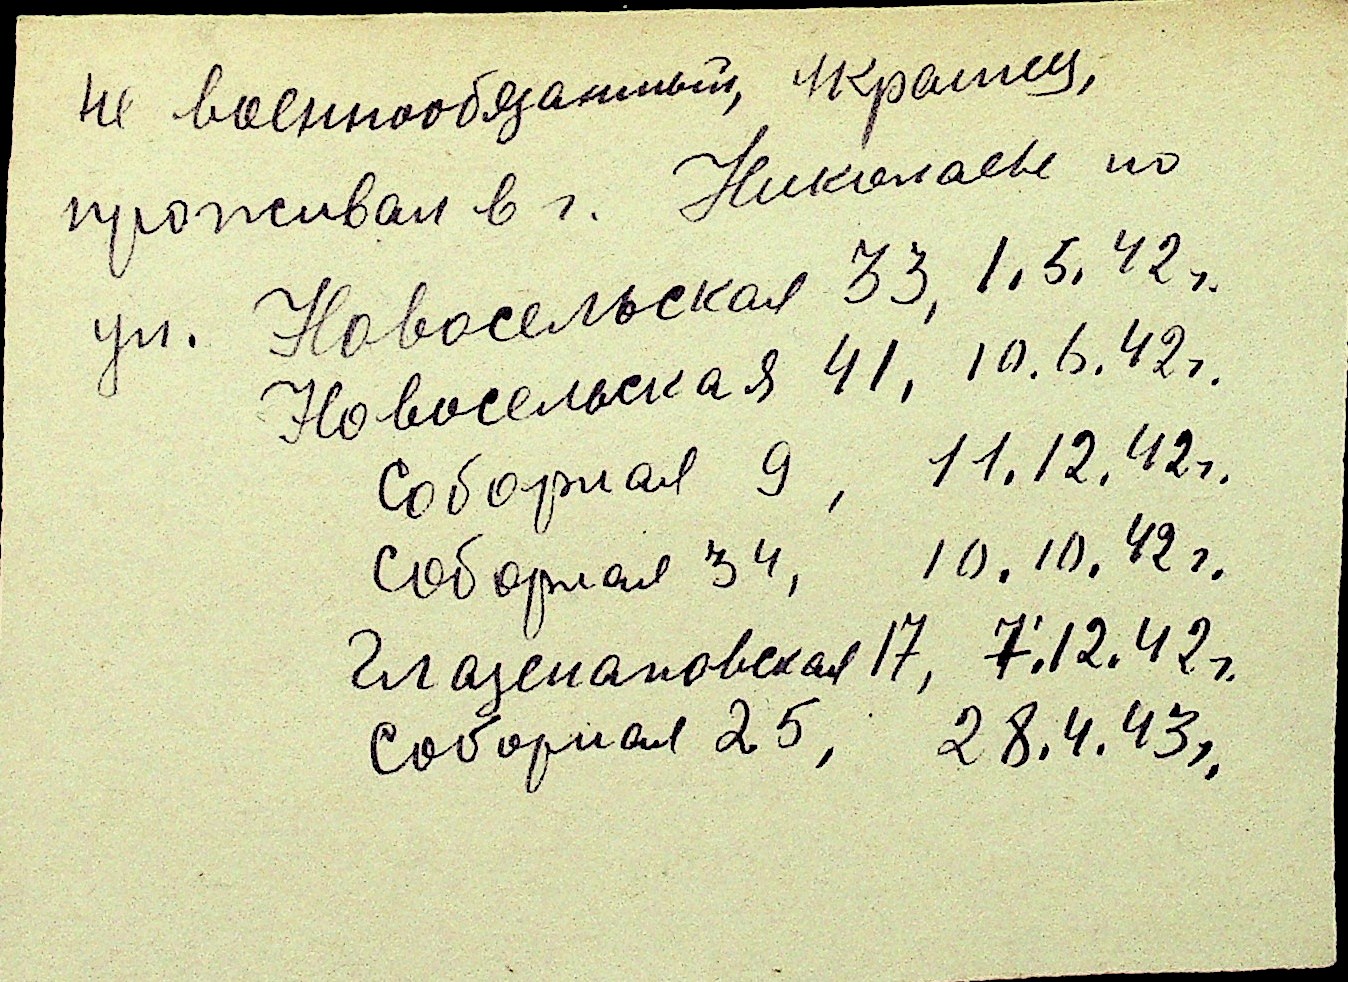 не военнообязанный, украинец,
проживал в г. Николаеве по
ул. Новосельская 33, 1.5.42г.
Новосельская 41, 10.6.42г.
Соборная 9, 11.12.42г.
Соборная 34, 10.10.42г.
Глазенаповская 17, 7.12.42г.
Соборная 25, 28.4.43г.